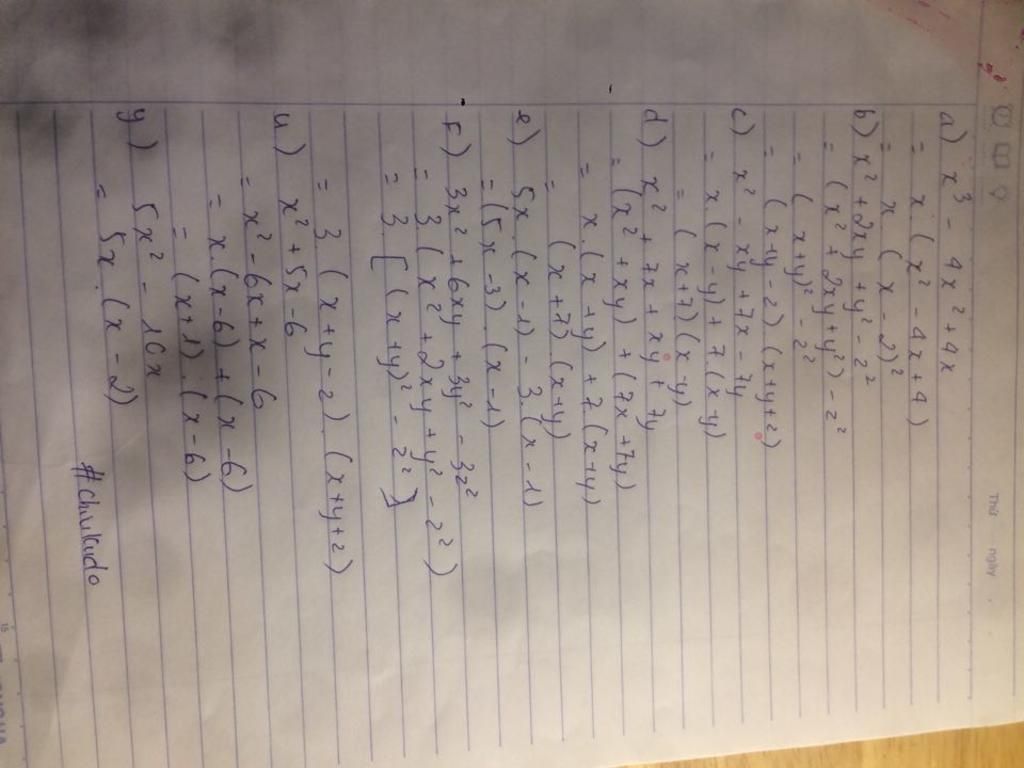 Thứ ngày
a) x³ - 4x² + 4x
= x.(x² - 4x + 4)
= x (x - 2)²
b) x² + 2xy + y² - 2²
= (x² + 2xy + y²) - 2²
= (x+y)² - 2²
= (x+y-2).(x+y+2)
c) x² - xy + 7x - 7y
= x.(x-y) + 7(x-y)
= (x+7)(x-y)
d) x² + 7x + xy + 7y
= (x² + xy) + (7x + 7y)
= x.(x+y) + 7.(x+y)
= (x+7).(x+y)
e) 5x.(x-1) - 3.(x-1)
= (5x-3).(x-1)
f) 3x² + 6xy + 3y² - 3z²
= 3(x² + 2xy + y² - 2²)
= 3.[(x+y)² - 2²]
= 3.(x+y-2).(x+y+2)
u) x² + 5x - 6
= x² - 6x + x - 6
= x.(x-6) + (x-6)
= (x+1).(x-6)
y) 5x² - 10x
= 5x.(x-2)